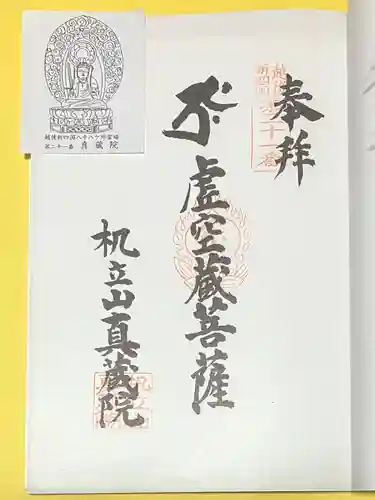 奉拝
第二十一番
虚空蔵菩薩
机立山真蔵院
越後新四国八十八ケ所霊場
第二十一番 真蔵院